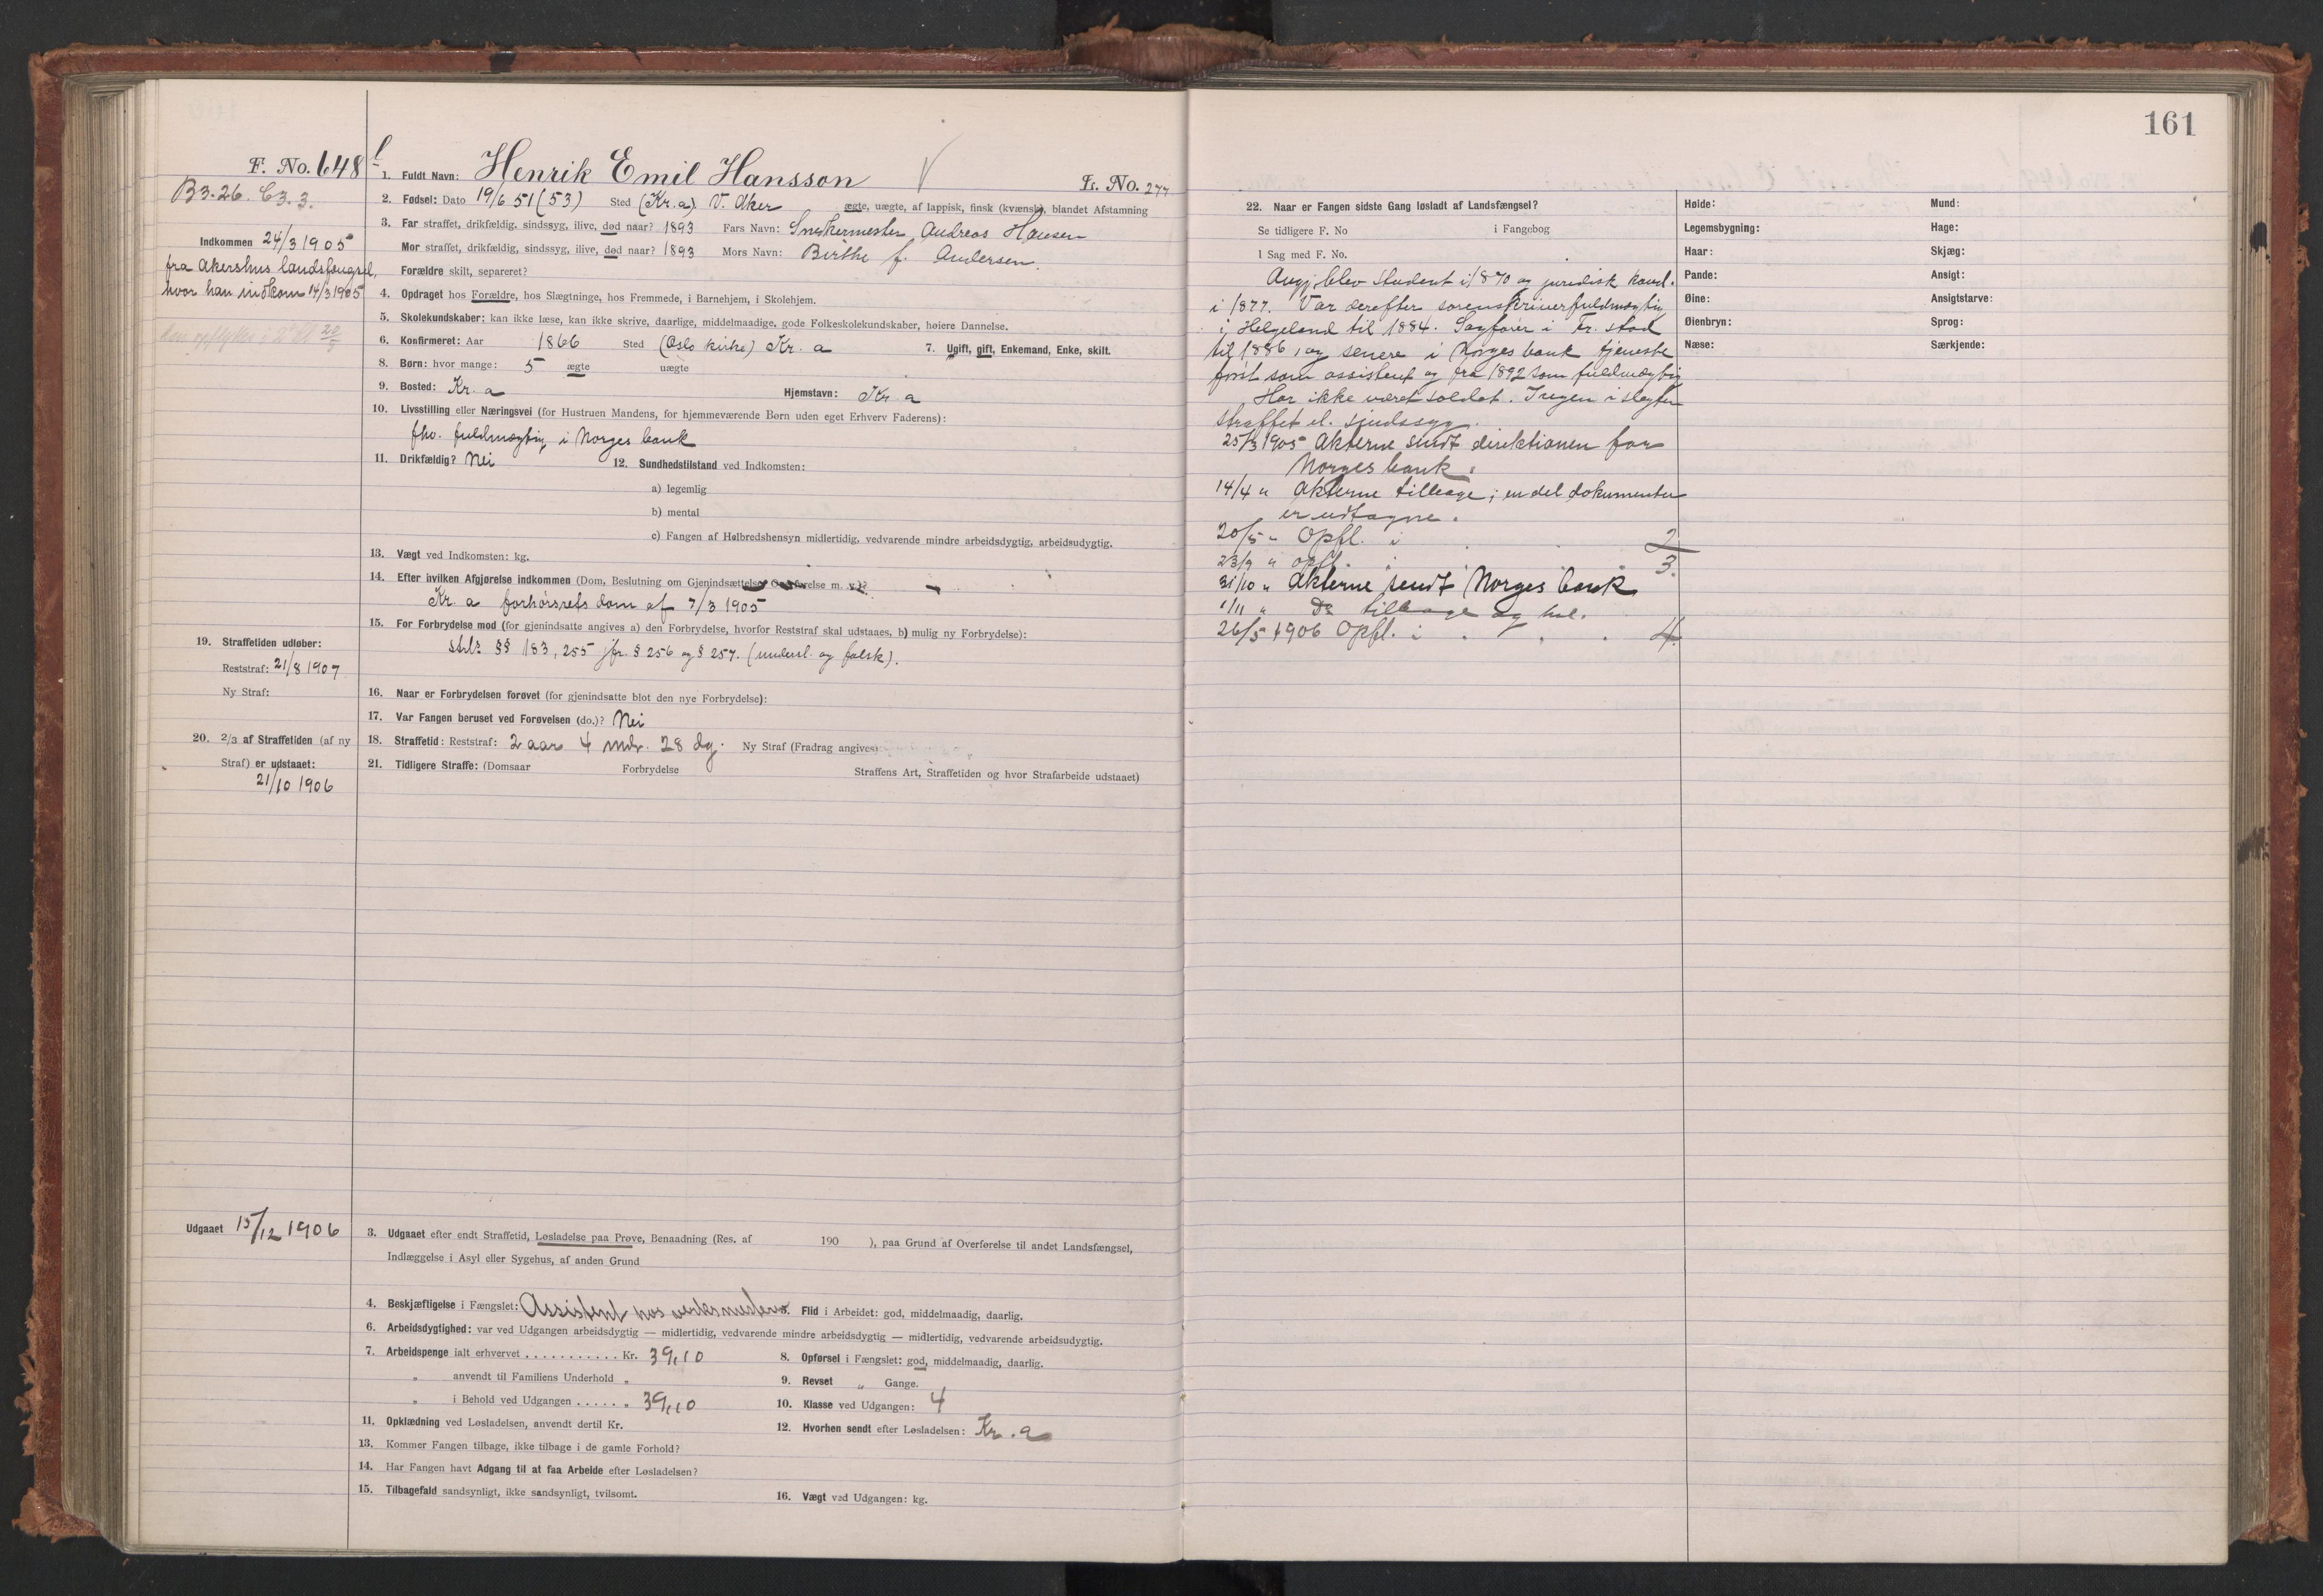 161
F. No. 648
B3.26. C3.3.
Indkommen 24/3 1905
fra Akershus landsfængsel,
hvor han indkom 14/3 1905
1. Fuldt Navn: Henrik Emil Hansson
Fr. No. 277
2. Fødsel: Dato 19/6 51 (53) Sted (Kr.a) V. Aker ægte, uægte, af lappisk, finsk (kvænsk), blandet Afstamning
3. Far straffet, drikfældig, sindssyg, ilive, død naar? 1893 Fars Navn: Snekermester Andreas Hansen
Mor straffet, drikfældig, sindssyg, ilive, død naar? 1893 Mors Navn: Birthe f. Andersen.
Forældre skilt, separeret?
4. Opdraget hos Forældre, hos Slægtninge, hos Fremmede, i Barnehjem, i Skolehjem.
5. Skolekundskaber: kan ikke læse, kan ikke skrive, daarlige, middelmaadige, gode Folkeskolekundskaber, høiere Dannelse.
6. Konfirmeret: Aar 1866 Sted (Oslo kirke) Kr. a 7. Ugift, gift, Enkemand, Enke, skilt.
8. Børn: hvor mange: 5 ægte uægte
9. Bosted: Kr. a Hjemstavn: Kr. a
10. Livsstilling eller Næringsvei (for Hustruen Mandens, for hjemmeværende Børn uden eget Erhverv Faderens):
fhv. fuldmægtig i Norges bank
11. Drikfældig? Nei 12. Sundhedstilstand ved Indkomsten:
a) legemlig
b) mental
c) Fangen af Helbredshensyn midlertidig, vedvarende mindre arbeidsdygtig, arbeidsudygtig.
13. Vægt ved Indkomsten: kg.
14. Efter hvilken Afgjørelse indkommen (Dom, Beslutning om Gjenindsættelse, Overførelse m. v.)?
Kr. a forhørsrets dom af 7/3 1905
15. For Forbrydelse mod (for gjenindsatte angives a) den Forbrydelse, hvorfor Reststraf skal udstaaes, b) mulig ny Forbrydelse):
strl. §§ 183, 255 jfr. § 256 og § 257. (undersl. og falsk).
19. Straffetiden udløber:
Reststraf: 21/8 1907
Ny Straf:
16. Naar er Forbrydelsen forøvet (for gjenindsatte blot den nye Forbrydelse):
17. Var Fangen beruset ved Forøvelsen (do.)? Nei
20. 2/3 af Straffetiden (af ny
Straf) er udstaaet:
21/10 1906
18. Straffetid: Reststraf: 2 aar 4 mdr. 28 dg. Ny Straf (Fradrag angives)
21. Tidligere Straffe: (Domsaar Forbrydelse Straffens Art, Straffetiden og hvor Strafarbeide udstaaet)
Udgaaet 15/12 1906
3. Udgaaet efter endt Straffetid, Løsladelse paa Prøve, Benaadning (Res. af 190 ), paa Grund af Overførelse til andet Landsfængsel,
Indlæggelse i Asyl eller Sygehus, af anden Grund
4. Beskjæftigelse i Fængslet: Assistent hos verksmesteren 5. Flid i Arbeidet: god, middelmaadig, daarlig.
6. Arbeidsdygtighed: var ved Udgangen arbeidsdygtig — midlertidig, vedvarende mindre arbeidsdygtig — midlertidig, vedvarende arbeidsudygtig.
7. Arbeidspenge ialt erhvervet . . . . . . . . . . . Kr. 39,10 8. Opførsel i Fængslet: god, middelmaadig, daarlig.
" anvendt til Familiens Underhold " 9. Revset " Gange.
" i Behold ved Udgangen . . . . . " 39,10 10. Klasse ved Udgangen: 4
11. Opklædning ved Løsladelsen, anvendt dertil Kr. 12. Hvorhen sendt efter Løsladelsen: Kr. a
13. Kommer Fangen tilbage, ikke tilbage i de gamle Forhold?
14. Har Fangen havt Adgang til at faa Arbeide efter Løsladelsen?
15. Tilbagefald sandsynligt, ikke sandsynligt, tvilsomt. 16. Vægt ved Udgangen: kg.
22. Naar er Fangen sidste Gang løsladt af Landsfængsel?
Se tidligere F. No i Fangebog
I Sag med F. No.
Angj. blev student i 1870 og juridisk kand.
i 1877. Var derefter sorenskriverfuldmægtig
i Helgeland til 1884. Sagfører i Fr. stad
til 1886, og senere i Norges bank tjeneste
først som assistent og fra 1892 som fuldmægtig
Har ikke været soldat. Ingen i slægten
straffet el. sindssyg.
25/3 1905 Akterne sendt direktionen for
Norges bank.
14/4 " Akterne tilbage; en del dokumenter
er udtagne.
20/5 " Opfl. i . . . 2
23/9 " opfl. i . . . 3.
31/10 " Akterne sendt Norges bank
1/11 " Do tilbage og hel.
26/5 1906 Opfl. i . . . 4.
Høide:
Legemsbygning:
Haar:
Pande:
Øine:
Øienbryn:
Næse:
Mund:
Hage:
Skjæg:
Ansigt:
Ansigtstarve:
Sprog:
Særkjende: